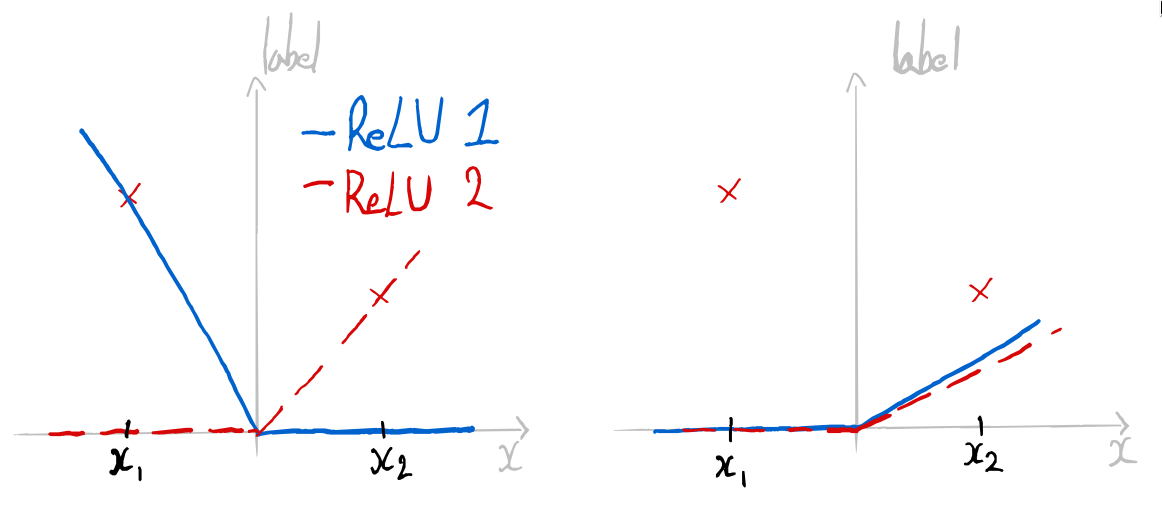 label
ReLU 1
ReLU 2
x₁ x₂ x
label
x₁ x₂ x